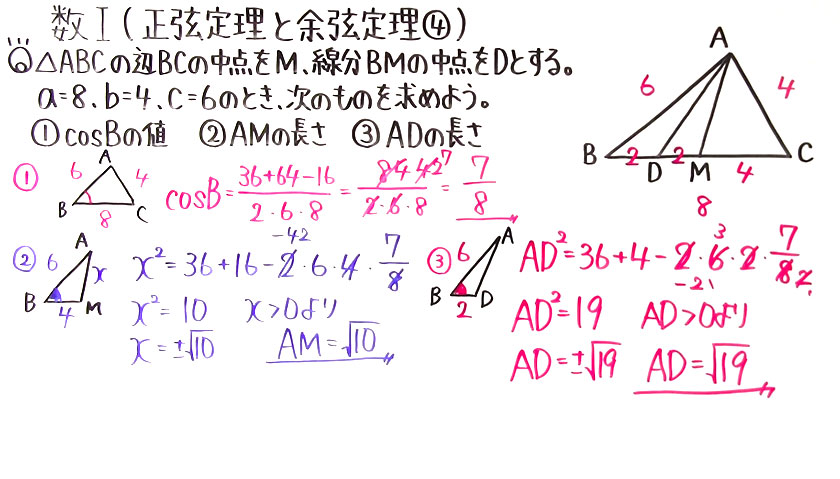 数Ⅰ(正弦定理と余弦定理④)
◎△ABCの辺BCの中点をM、線分BMの中点をDとする。
a=8、b=4、c=6のとき、次のものを求めよう。
①cosBの値 ②AMの長さ ③ADの長さ
A
6 4
B 2 D 2 M 4 C
8
① A 6 4 B 8 C
cosB=(36+64-16)/(2・6・8)=84 42 7/(2・6・8)=7/8
② A 6 x B 4 M
x²=36+16-2・6・4・7/8
-42
x²=10 x>0より
x=±√10 AM=√10
③ A 6 B 2 D
AD²=36+4-2・6・2・7/8
3 2
-21
AD²=19 AD>0より
AD=±√19 AD=√19